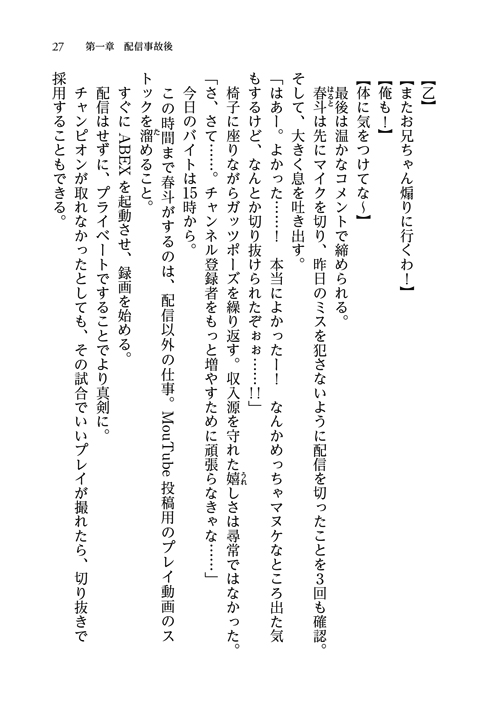 27　第一章　配信事故後
【乙】
【またお兄ちゃん煽りに行くわ！】
【俺も！】
【体に気をつけてな～】
最後は温かなコメントで締められる。
春斗は先にマイクを切り、昨日のミスを犯さないように配信を切ったことを３回も確認。
そして、大きく息を吐き出す。
「はあー。よかった……！　本当によかったー！　なんかめっちゃマヌケなところ出た気
もするけど、なんとか切り抜けられたぞぉぉ……!!」
椅子に座りながらガッツポーズを繰り返す。収入源を守れた嬉しさは尋常ではなかった。
「さ、さて……。チャンネル登録者をもっと増やすために頑張らなきゃな……」
今日のバイトは15時から。
この時間まで春斗がするのは、配信以外の仕事。MouTube 投稿用のプレイ動画のス
トックを溜めること。
すぐに ABEX を起動させ、録画を始める。
配信はせずに、プライベートですることでより真剣に。
チャンピオンが取れなかったとしても、その試合でいいプレイが撮れたら、切り抜きで
採用することもできる。